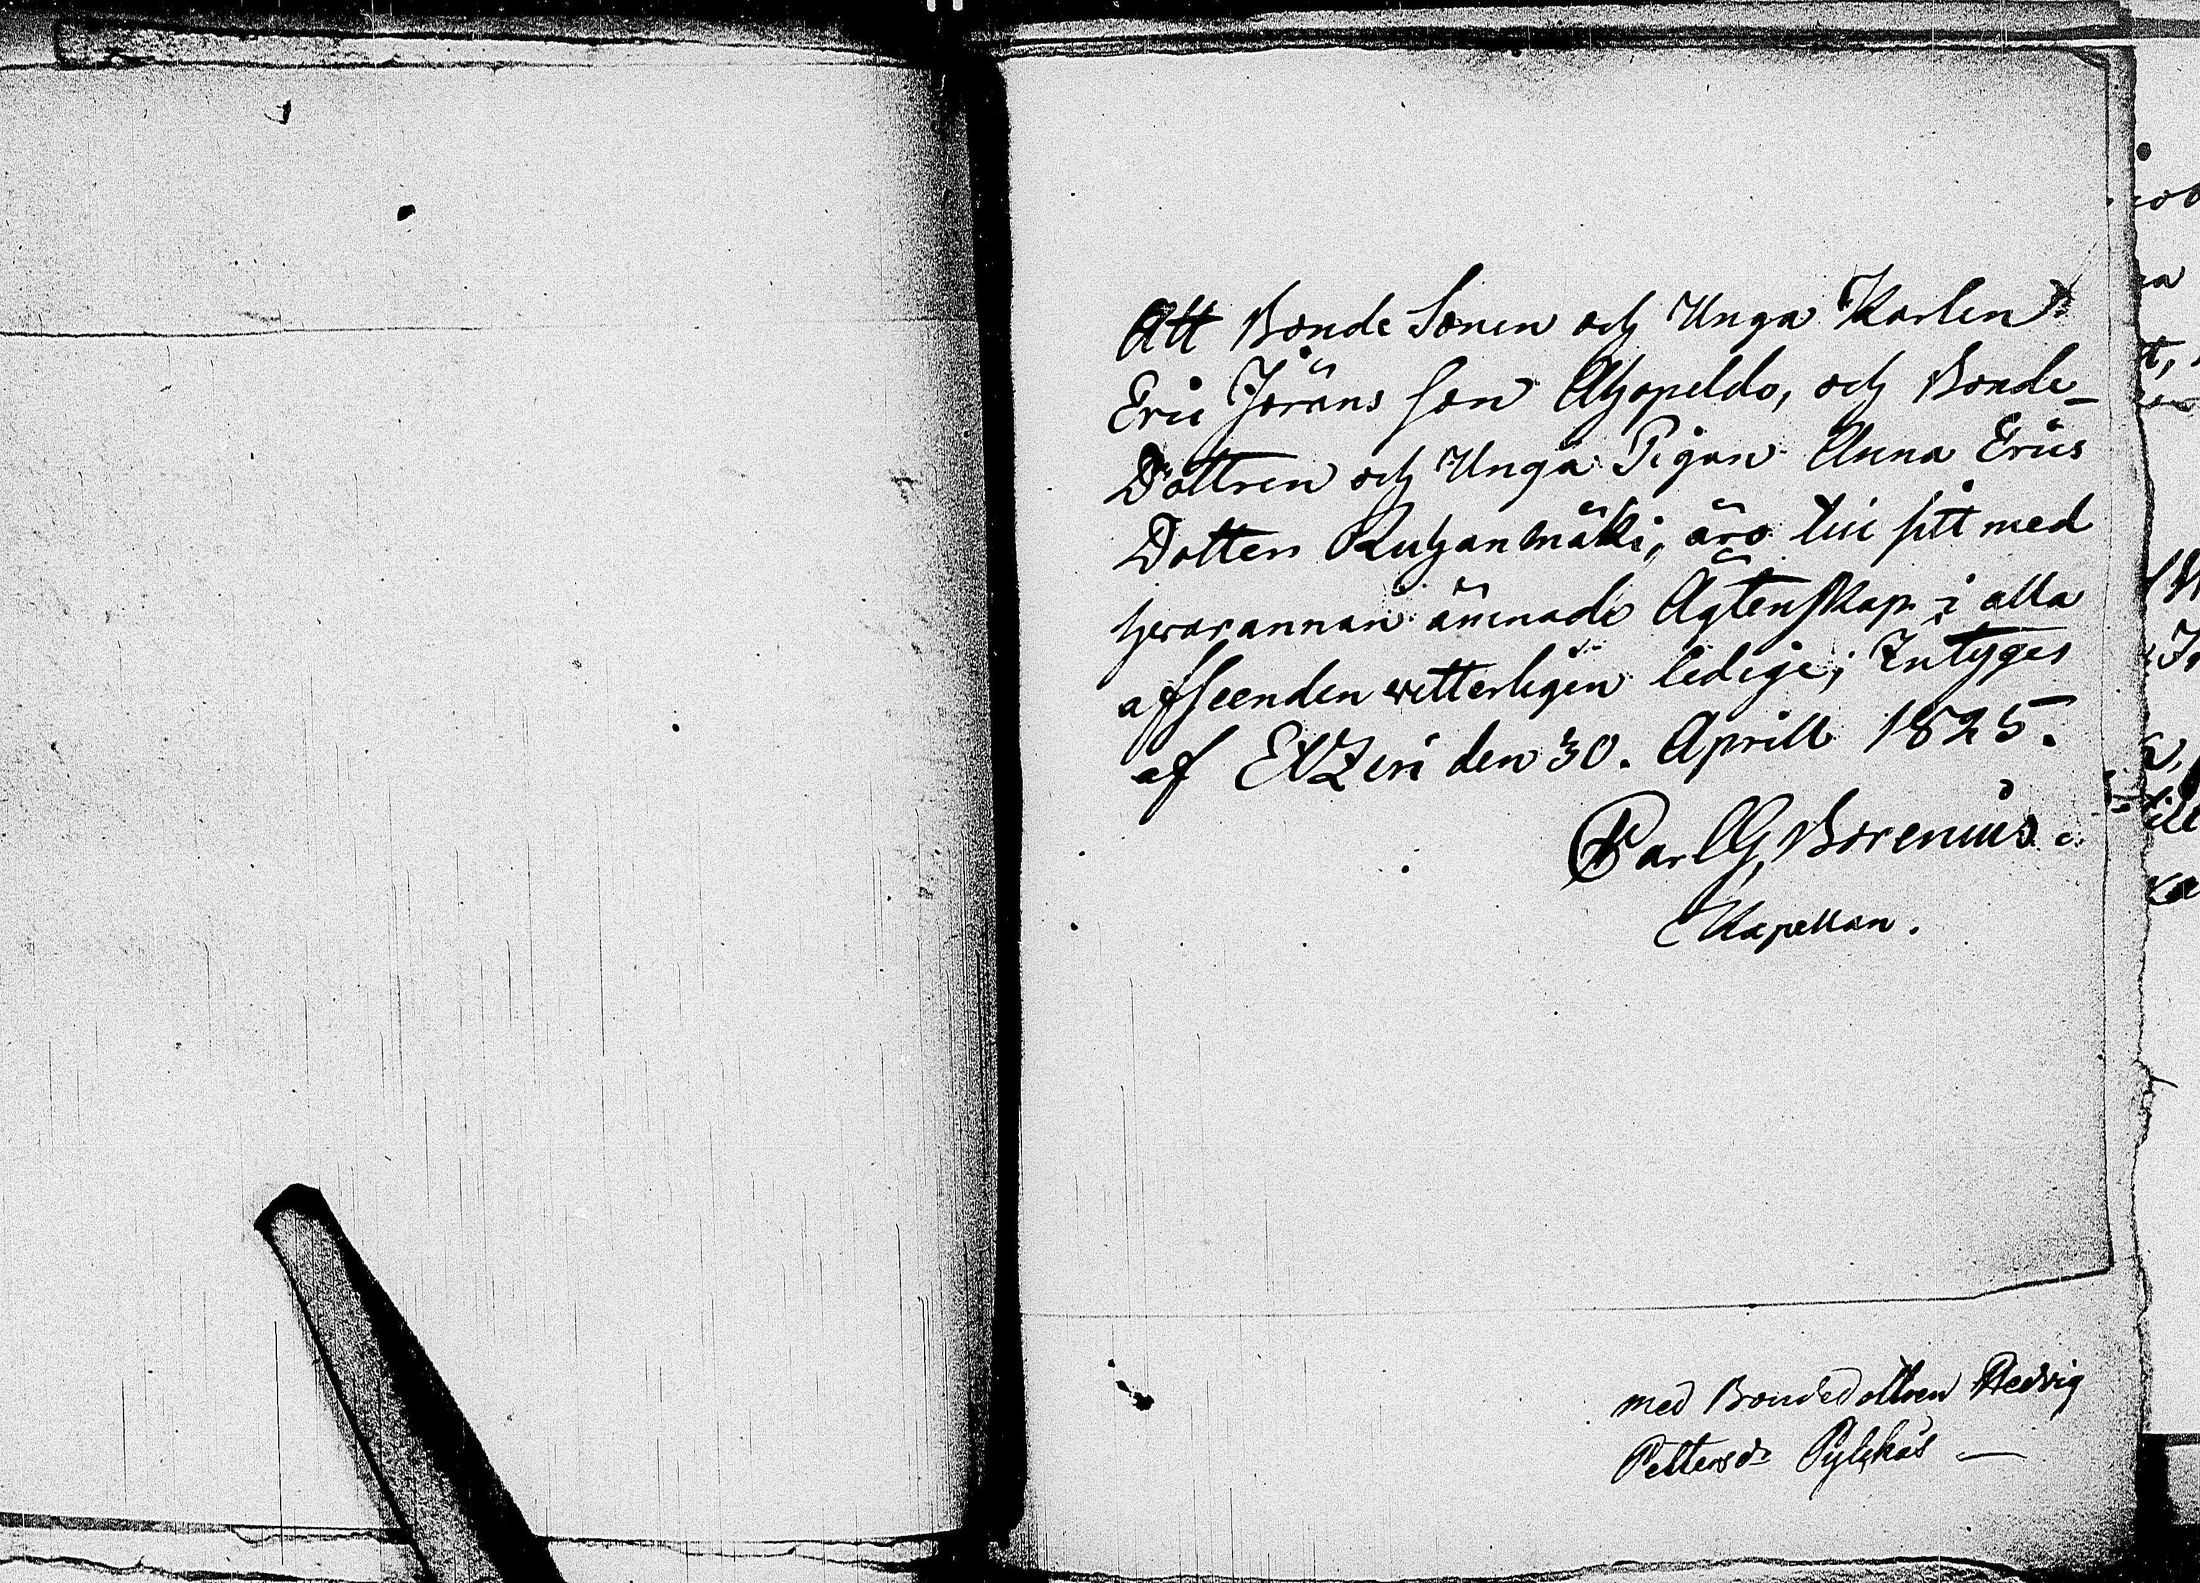 Att Bonde Sonen och Unga Karlen
Eric Jörans son Ahopeldo, och Bonde-
Dottren och Unga Pigan Anna Erics
Dotter Ruhanmäki, äro till sitt med
hvarannan ämnade Ägtenskap i alla
afseenden witterligen ledige; Intyges
af Etzeri den 30. Aprill 1825.
Carl G. Borenius.
Kapellan.
med Bondedottren Hedvig
Pettersdr Pylkäs —